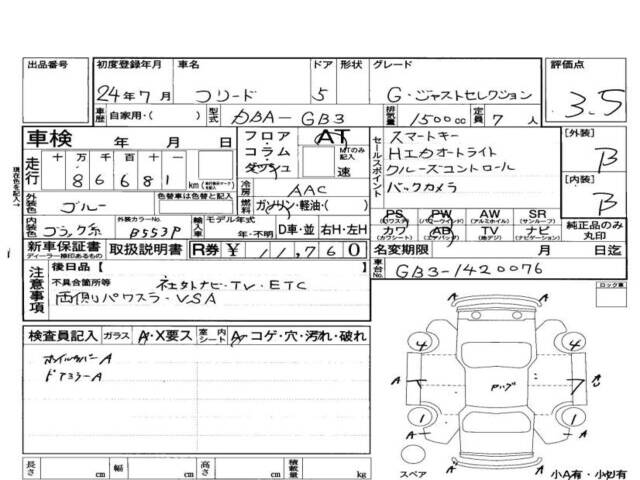 出品番号 初度登録年月 車名 ドア 形状 グレード 評価点
24年7月 フリード 5 G・ジャストセレクション 3.5
車歴 自家用・( ) 型式 DBA-GB3 排気量 1500cc 定員 7人
車検 年 月 日 フロア・コラム・ダッシュ AT MTのみ記入 速
走行 十 万 千 百 十 一
86681 km
冷房 AAC
外装色 ブルー 色替車は色替と記入 燃料 ガソリン・軽油・( )
内装色 ブラック系 外装カラーNo. B553P 輸入車 モデル年式 年・不明 D車・並 右H・左H
セールスポイント スマートキー
HIDオートライト
クルーズコントロール
バックカメラ
PS (パワステ) PW (パワーウインド) AW (アルミホイル) SR (サンルーフ)
カワ (カワシート) AB (エアバッグ) TV (地デジ) ナビ (ナビゲーション)
[外装] B
[内装] B
純正品のみ丸印
現在色を記入→
新車保証書 ディーラー捺印あるもの 取扱説明書 R券 ¥ 11,760 名変期限 月 日迄
注意事項 後日品 [ ]
不具合箇所等 社外ナビ・TV・ETC
両側パワスラ・VSA
車台No. GB3-1420076
ロック車
検査員記入 ガラス A・X要ス 室内シート A・コゲ・穴・汚れ・破れ
ホイルカバーA
ドアミラーA
A
4 4
A A
1 1
A A
スペア 小A有・小凹有
長さ cm 幅 cm 高さ cm 積載量 kg